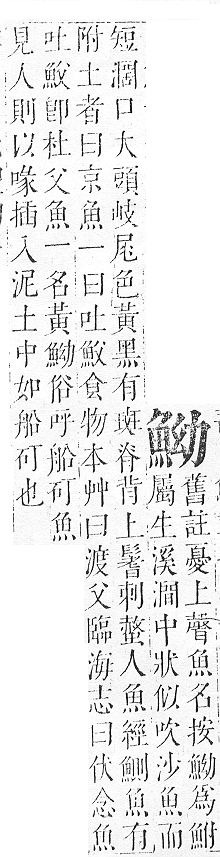 䱂
舊註憂上聲魚名按䱂爲鮒
屬生溪澗中狀似吹沙魚而
短濶口大頭岐尾色黃黑有斑脊背上鬐刺螫人魚經鰂魚有
附土者曰京魚一曰吐鮫食物本艸曰渡父臨海志曰伏念魚
吐鮫卽杜父魚一名黃䱂俗呼船矴魚
見人則以喙插入泥土中如船矴也